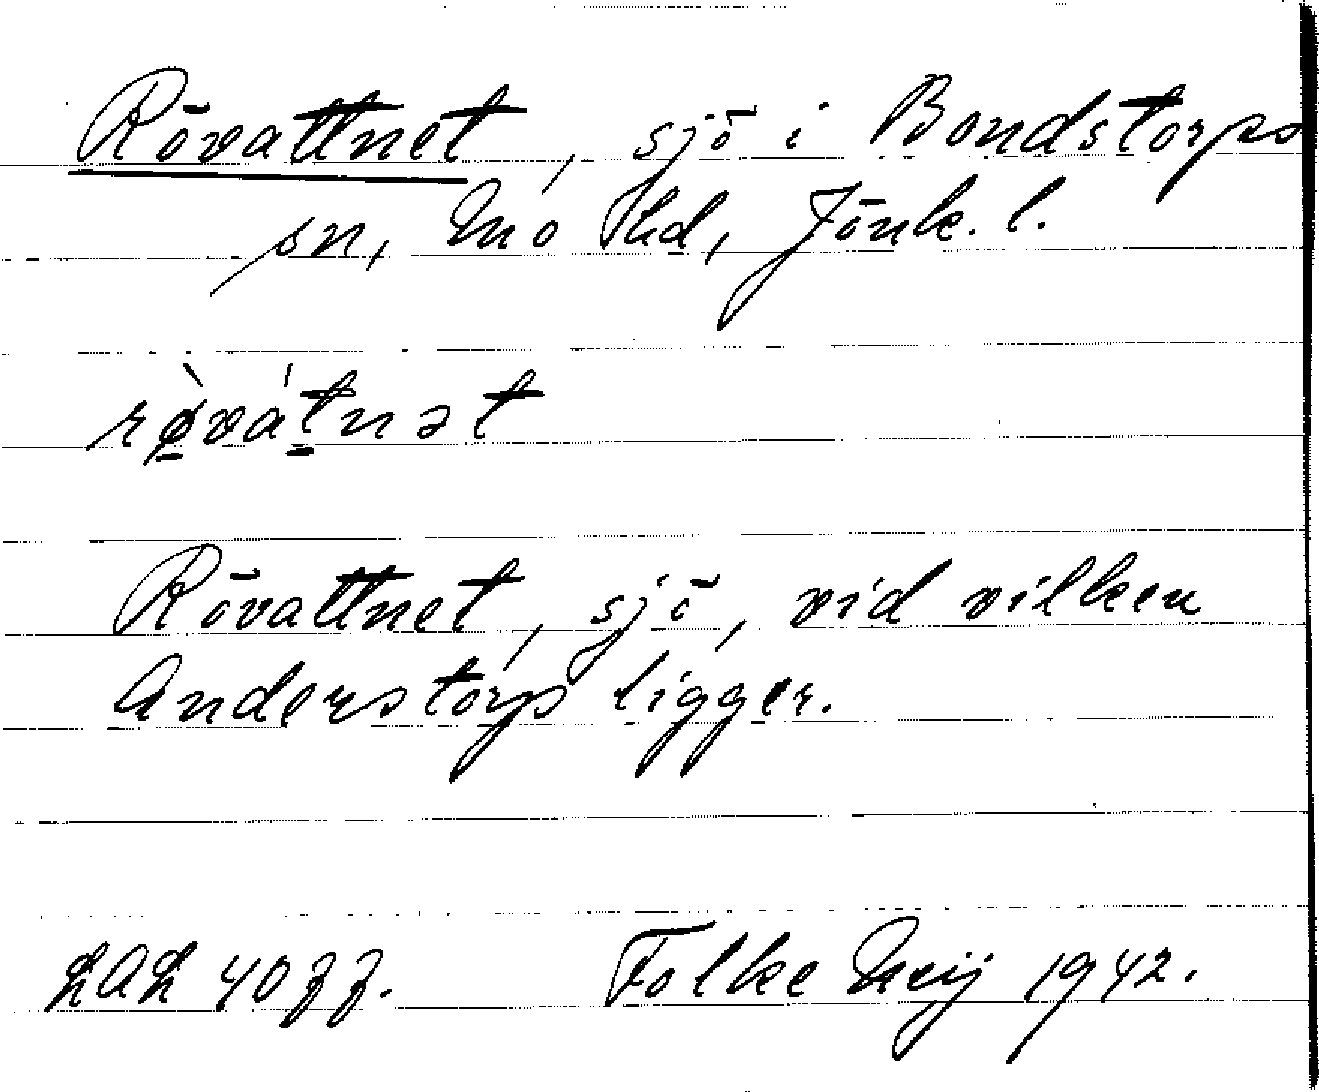 Rövattnet, sjö i Bondstorps
sn, Mo hd, Jönk. l.
rø̀vátnət
Rövattnet, sjö, vid vilken
Anderstorp ligger.
1942.